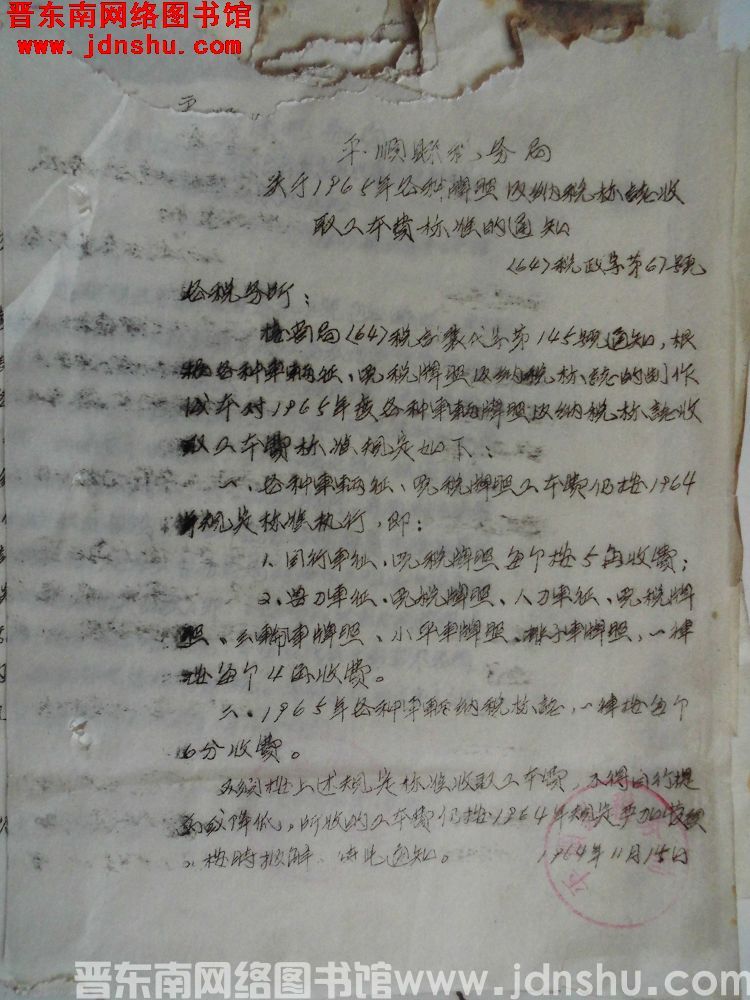 晋东南网络图书馆
www.jdnshu.com
平顺县税务局
关于1965年各种牌照及纳税标誌收
取工本费标准的通知
(64)税政字第67号
各税务所：
接省局(64)税字第145号通知，根
据各种车辆征、免税牌照及纳税标誌的制作
成本对1965年度各种车辆牌照及纳税标誌收
取工本费标准规定如下：
一、各种车辆征、免税牌照工本费仍按1964
年规定标准执行，即：
1、自行车征、免税牌照每个按5角收费；
2、兽力车征、免税牌照、人力车征、免税牌
照、三轮车牌照、小平车牌照、排子车牌照，一律
按每个4角收费。
二、1965年各种车辆纳税标誌，一律按每个
6分收费。
必须按上述规定标准收取工本费，不得自行提
高或降低。所收的工本费仍按1964年规定
按时报解。特此通知。 1964年11月15日
晋东南网络图书馆www.jdnshu.com